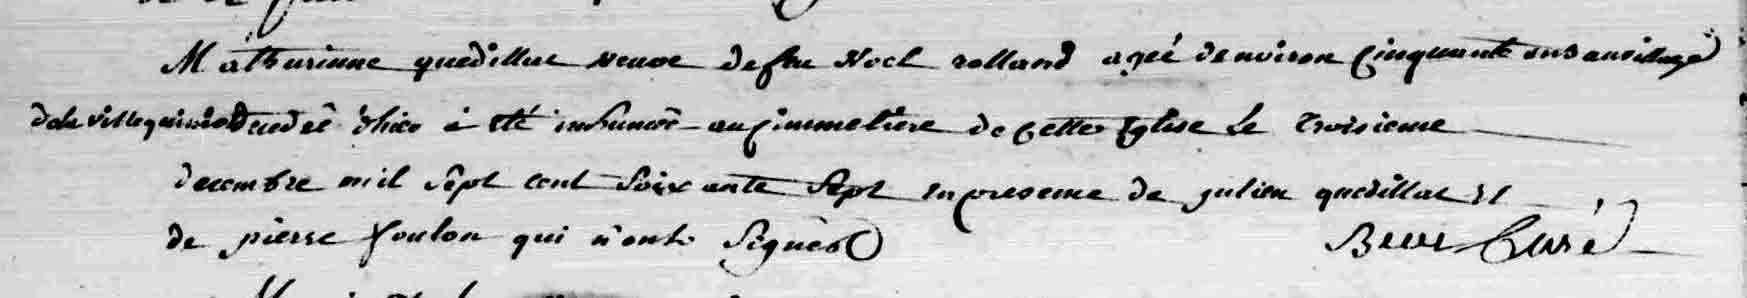 Mathurinne quedillac veuve de feu Noel rolland agée denviron Cinquante ans au village
de la ville decedeé d'hier à eté inhumeé au cimmetiere de cette Eglise le troisieme
decembre mil sept cent soixante sept en presence de julien quedillac et
de pierre foulon qui n'ont signés Curé